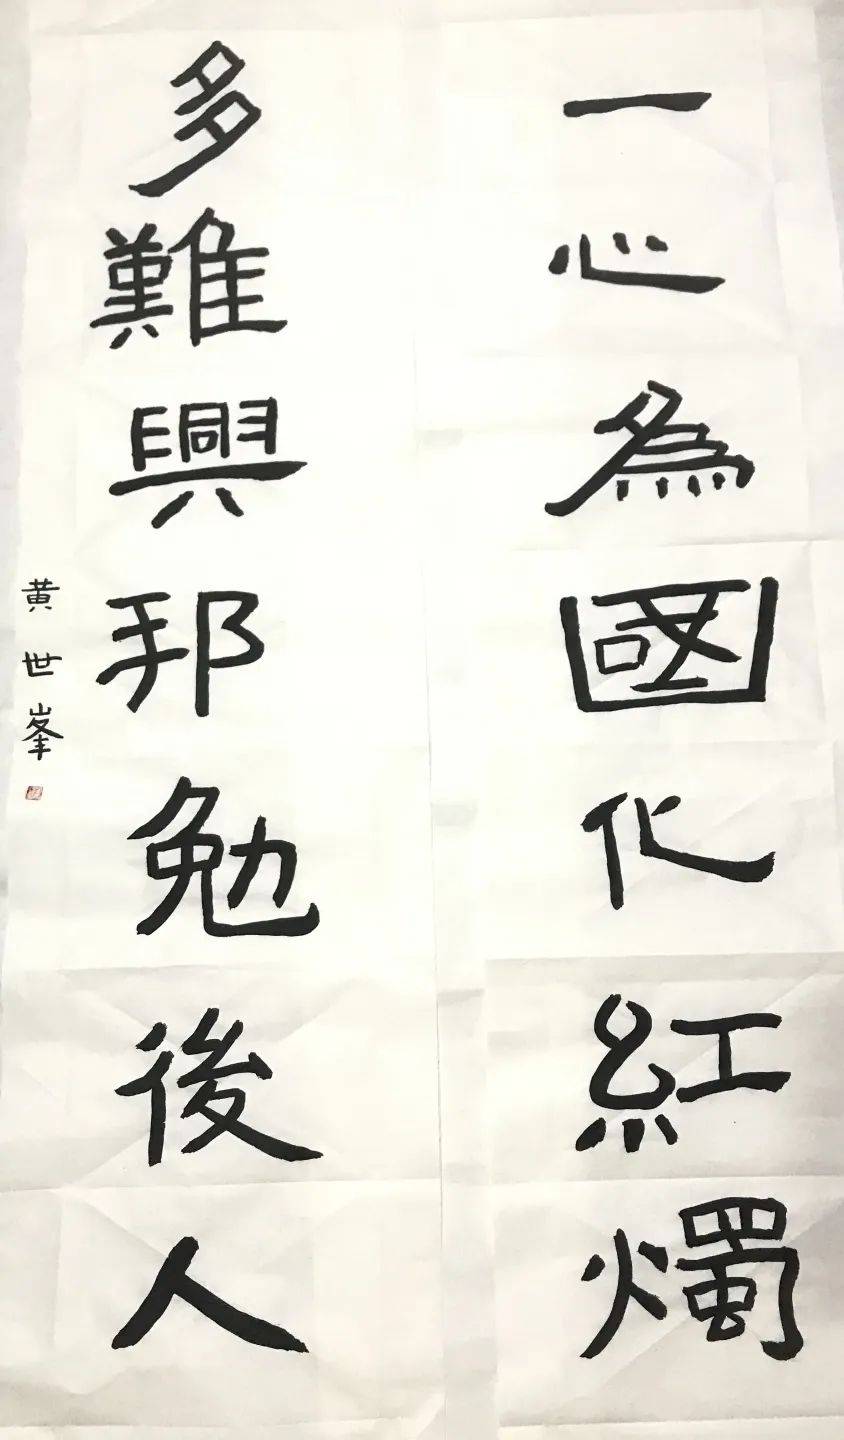 一心為國化紅燭
多難興邦勉後人
黄世峯